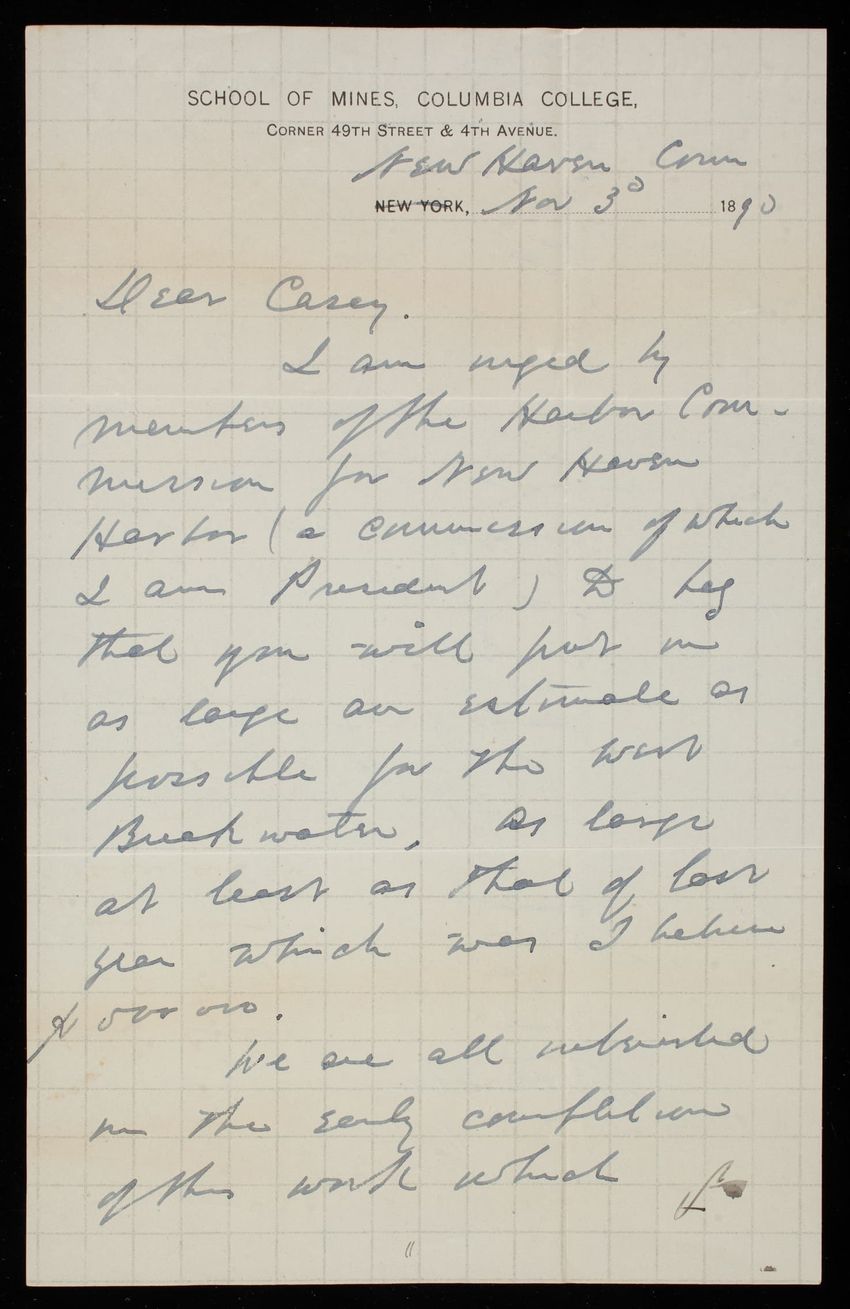 SCHOOL OF MINES, COLUMBIA COLLEGE,
CORNER 49TH STREET & 4TH AVENUE.
New Haven Conn
NEW YORK, Nov 3d 1890
Dear Casey.
I am urged by
members of the Harbor Com-
mission for New Haven
Harbor (a commission of which
I am President) to beg
that you will put in
as large an estimate as
possible for the west
Breakwater, as large
at least as that of last
year which was I believe
We are all interested
in the early completion
of this work which